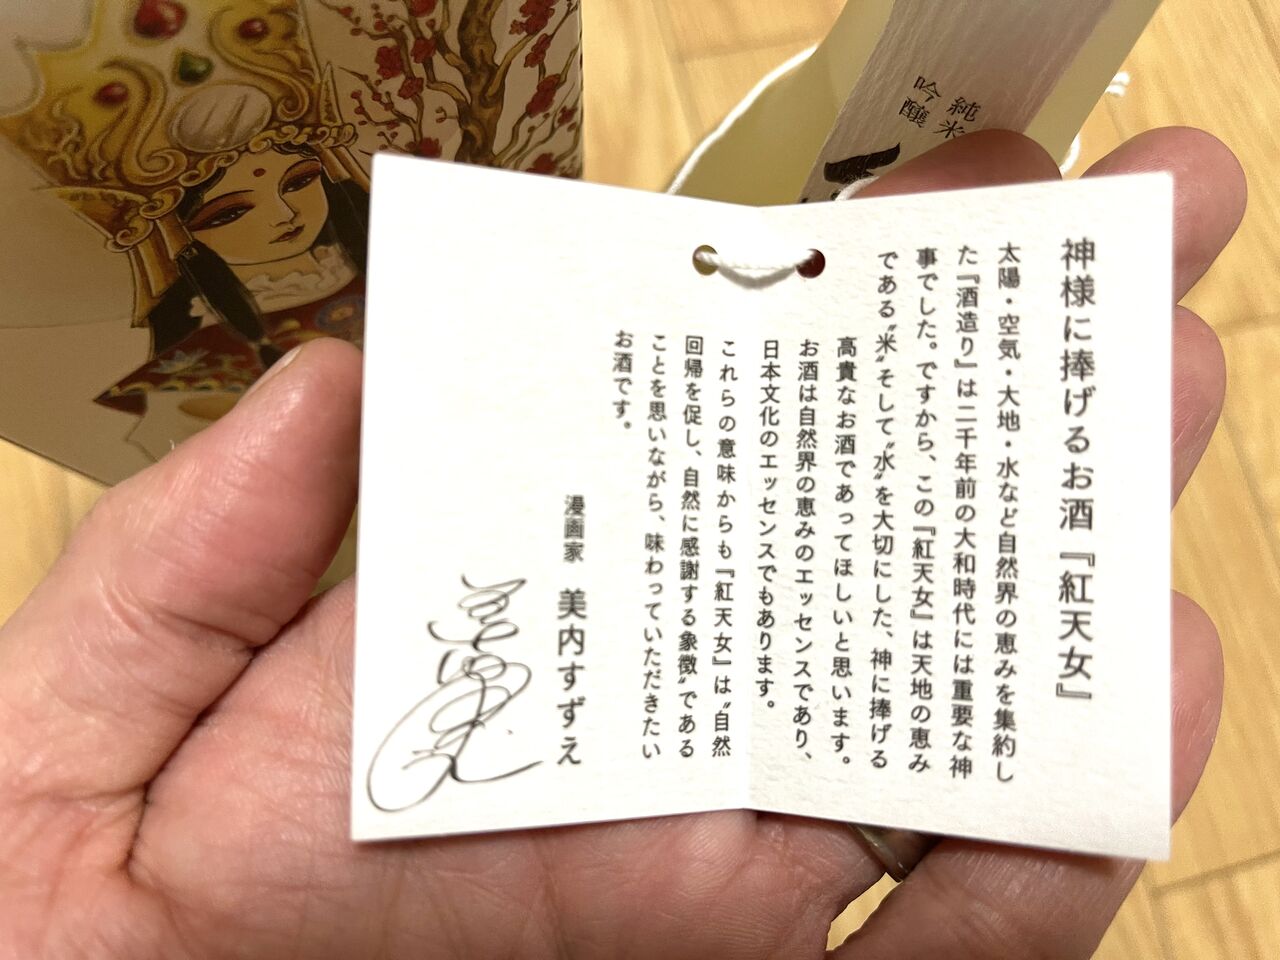 純米
吟醸
神様に捧げるお酒『紅天女』
太陽・空気・大地・水など自然界の恵みを集約し
た『酒造り』は二千年前の大和時代には重要な神
事でした。ですから、この『紅天女』は天地の恵み
である〝米〟そして〝水〟を大切にした、神に捧げる
高貴なお酒であってほしいと思います。
お酒は自然界の恵みのエッセンスであり、
日本文化のエッセンスでもあります。
これらの意味からも『紅天女』は〝自然
回帰を促し、自然に感謝する象徴〟である
ことを思いながら、味わっていただきたい
お酒です。
漫画家 美内すずえ